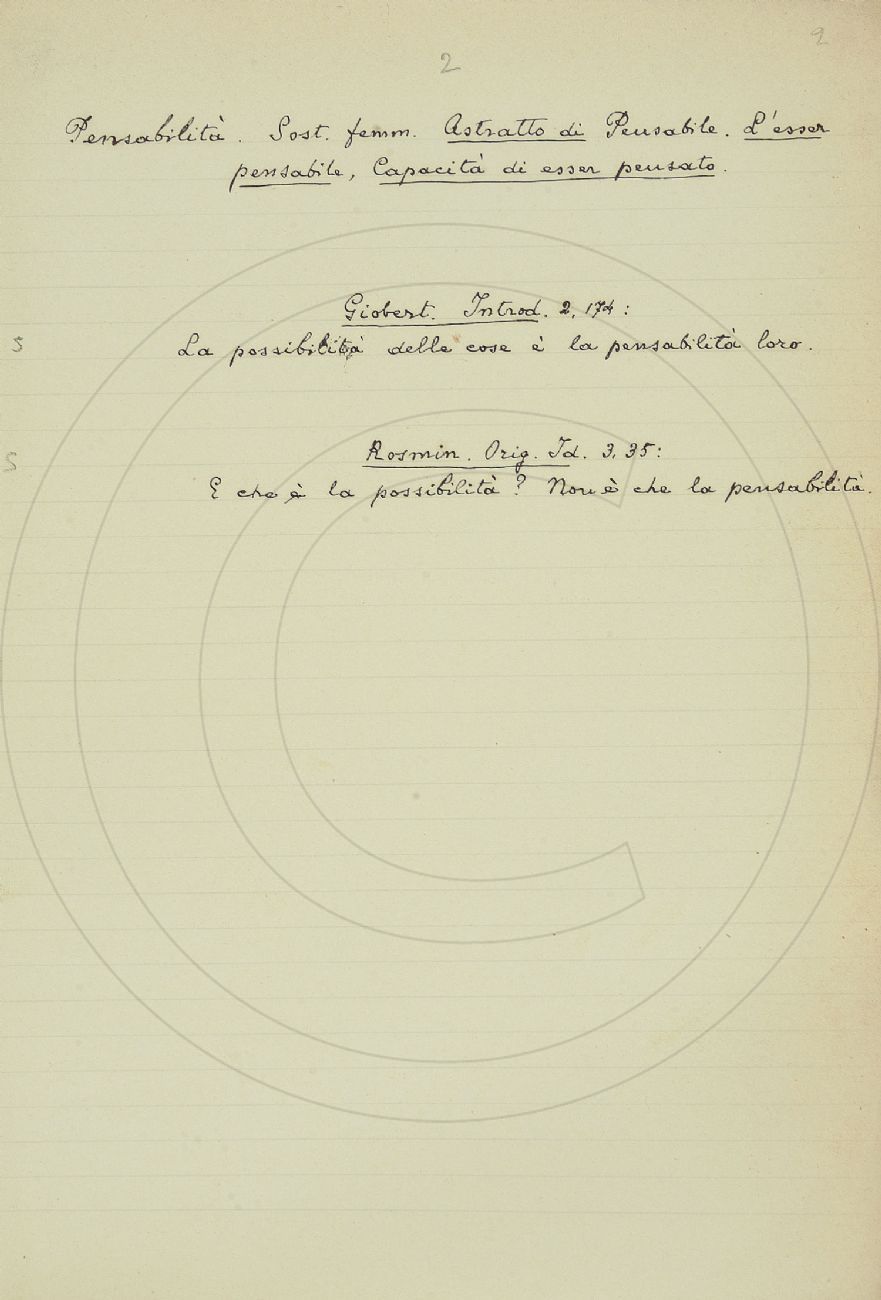 2
2
Pensabilità. Sost. femm. Astratto di Pensabile. L'esser
pensabile, Capacità di esser pensato.
Giobert. Introd. 2, 174:
S
La possibilità delle cose è la pensabilità loro.
Rosmin. Orig. Id. 3, 35:
S
E che è la possibilità? Non è che la pensabilità.